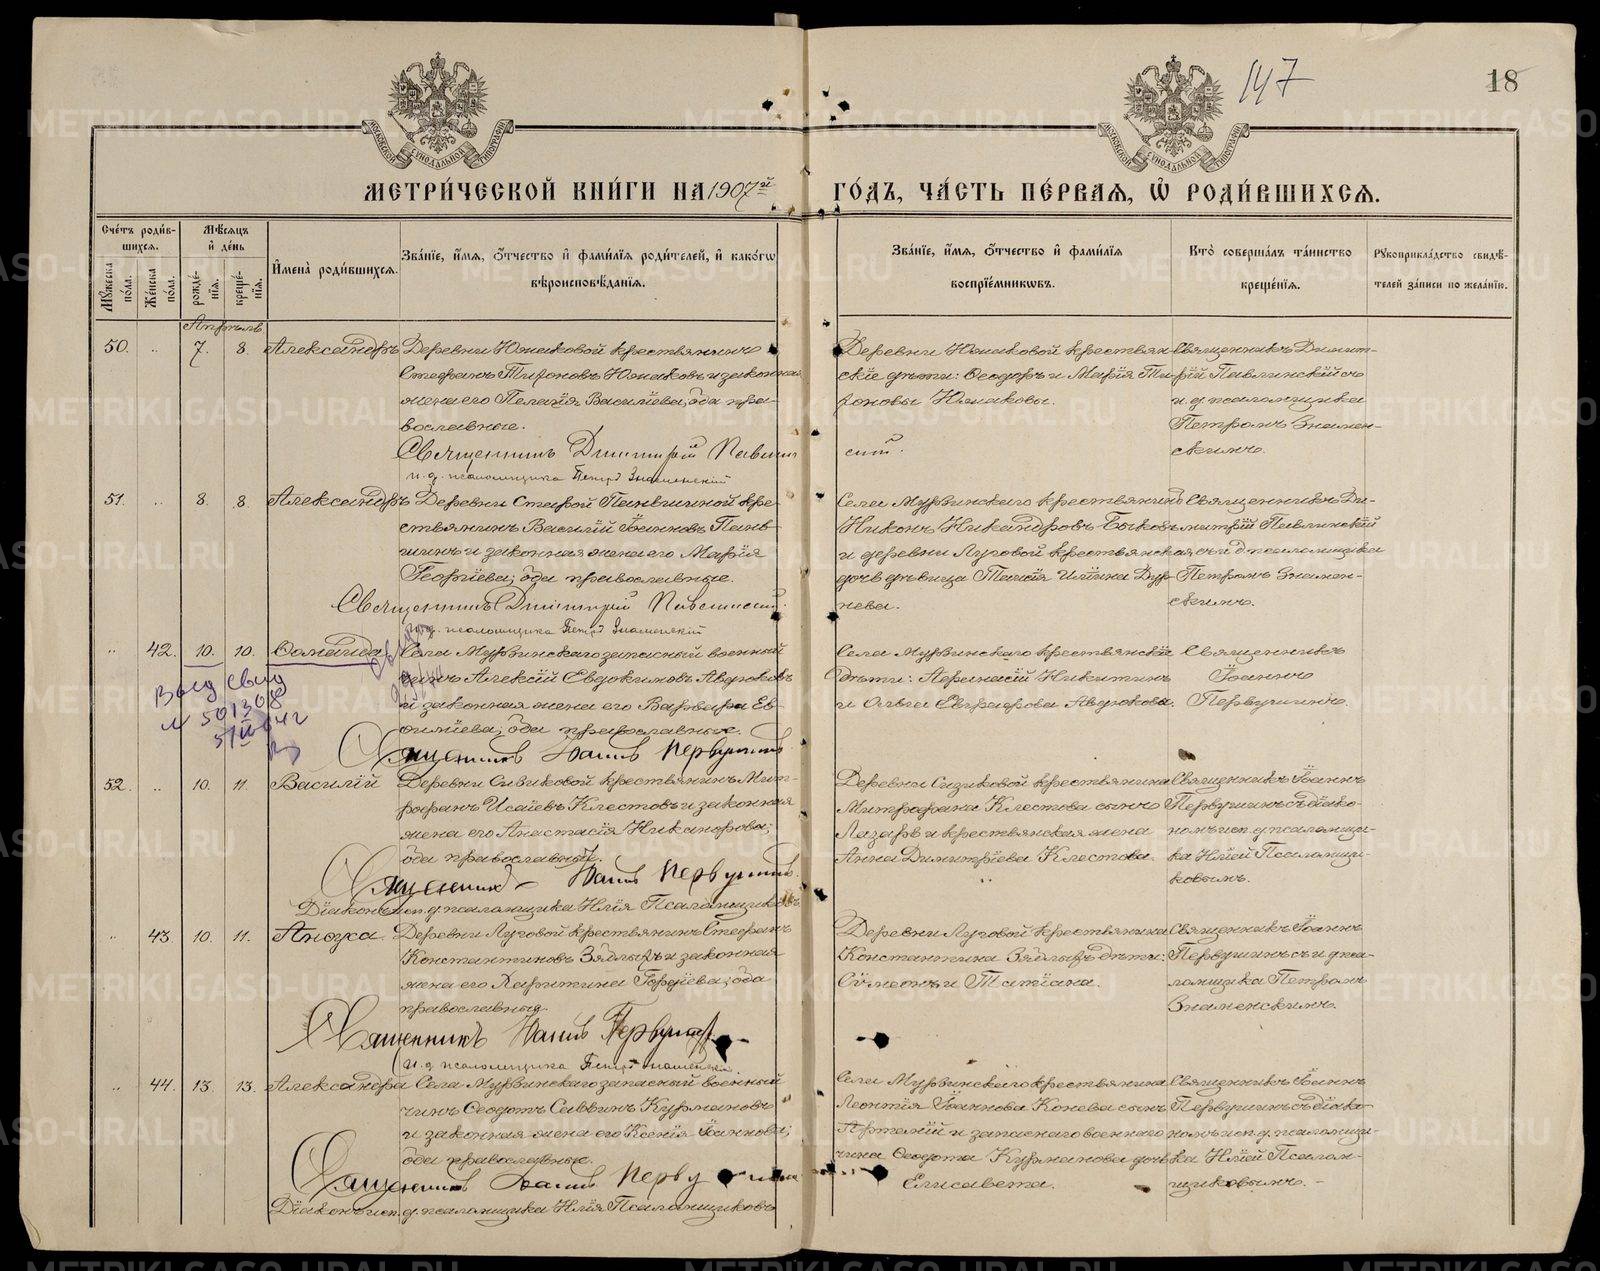 147
18
МЕТРИ́ЧЕСКОЙ КНИ́ГИ НА 1907й ГО́ДЪ, ЧА́СТЬ ПЕ́РВАѦ, Ѽ РОДИ́ВШИХСѦ.
Сче́тъ роди́вшихся.
Мѣ́сяцъ и́ де́нь
Мꙋ́жеска по́ла.
Же́нска по́ла.
рожде́нїѧ.
креще́нїѧ.
И҆мена̀ роди́вшихсѧ.
Зва́нїе, и҆́мѧ, ѻ҆́тчество и҆ фами́лїѧ роди́телей, и҆ како́гѡ вѣроисповѣ́данїѧ.
Зва́нїе, и҆́мѧ, ѻ҆́тчество и҆ фами́лїѧ воспрїе́мникѡвъ.
Кто̀ соверша́лъ та́инство креще́нїѧ.
Рꙋкоприкла́дство свидѣ́телей за́писи по жела́нїю.
Апрѣль
50. „ 7. 8. Александръ
Деревни Южаковой крестьянинъ
Стефанъ Тифоновъ Южаковъ и законная
жена его Пелагія Василіева; оба пра-
вославные.
Священникъ Димитрій Павлинскій.
и. д. псаломщика Петръ Знаменскій
Деревни Южаковой крестьян-
скіе дѣти: Ѳеодоръ и Марія Ти-
фоновы Южаковы.
Священникъ Димит-
рій Павлинскій съ
и. д. псаломщика
Петромъ Знамен-
скимъ.
51. „ 8. 8. Александръ
Деревни Старой Паньшиной кре-
стьянинъ Василій Іоанновъ Пань-
шинъ и законная жена его Марія
Георгіева; оба православные.
Священникъ Димитрій Павлинскій.
и. д. псаломщика Петръ Знаменскій
Села Мурзинскаго крестьянинъ
Никонъ Никандровъ Быковъ
и деревни Луговой крестьянская
дочь дѣвица Таисія Ильина Дур-
нева.
Священникъ Ди-
митрій Павлинскій
съ и. д. псаломщика
Петромъ Знамен-
скимъ.
„ 42. 10. 10. Ѳомаида
Села Мурзинскаго запасный военный
чинъ Алексій Евдокимовъ Авдюковъ
и законная жена его Варвара Ев-
ѳиміева; оба православные.
Священникъ Іоаннъ Первушинъ
Выд. Свид
N 501308
Села Мурзинскаго крестьянскіе
дѣти: Аѳанасій Никитинъ
и Ольга Евграфова Авдюкова.
Священникъ
Іоаннъ
Первушинъ.
52. „ 10. 11. Василій
Деревни Сизиковой крестьянинъ Мит-
рофанъ Исаевъ Клестовъ и законная
жена его Анастасія Никанорова;
оба православные.
Священникъ Іоаннъ Первушинъ.
Діаконъ исп. д. псаломщика Илія Псаломщиковъ.
Деревни Сизиковой крестьянина
Митрофана Клестова сынъ
Лазарь и крестьянская жена
Анна Димитріева Клестова.
Священникъ Іоаннъ
Первушинъ съ діако-
номъ исп. д. псаломщи-
ка Иліей Псаломщи-
ковымъ.
„ 43. 10. 11. Анѳуса.
Деревни Луговой крестьянинъ Стефанъ
Константиновъ Зядлыхъ и законная
жена его Харитина Гордіева; оба
православные.
Священникъ Іоаннъ Первушинъ
и. д. псаломщика Петръ Знаменскій.
Деревни Луговой крестьянина
Константина Зядлыхъ дѣти:
Сѵмеонъ и Татіана.
Священникъ Іоаннъ
Первушинъ съ и. д. пса-
ломщика Петромъ
Знаменскимъ.
„ 44. 13. 13. Александра
Села Мурзинскаго запасный военный
чинъ Ѳеодотъ Саввинъ Курмановъ
и законная жена его Ксенія Іоаннова;
оба православные.
Священникъ Іоаннъ Первушинъ
Діаконъ исп. д. псаломщика Илія Псаломщиковъ
Села Мурзинскаго крестьянина
Леонтія Іоаннова Конева сынъ
Артемій и запаснаго военнаго
чина Ѳеодота Курманова дочь
Елисавета.
Священникъ Іоаннъ
Первушинъ съ діако-
номъ исп. д. псаломщи-
ка Иліей Псалом-
щиковымъ.
METRIKI.GASO-URAL.RU